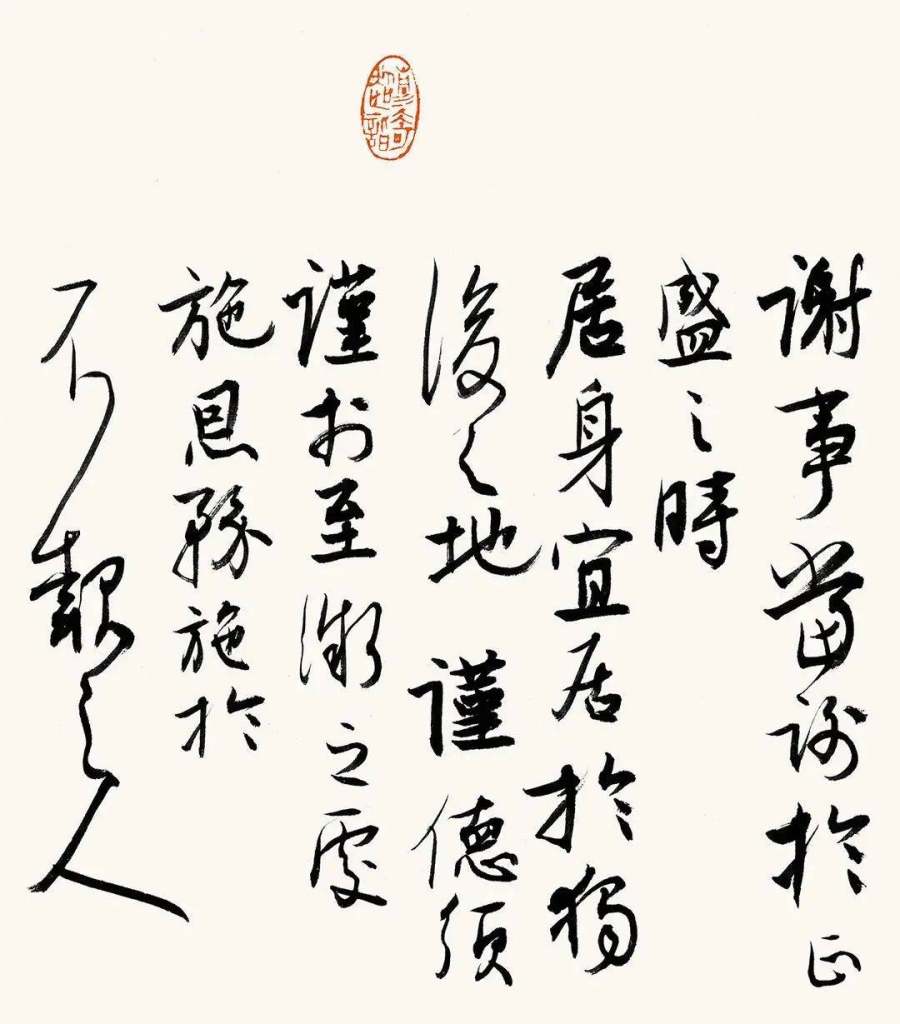 謝事當謝於正
盛之時
居身宜居於獨
後之地謹德須
謹於至微之處
施恩務施於
不報之人